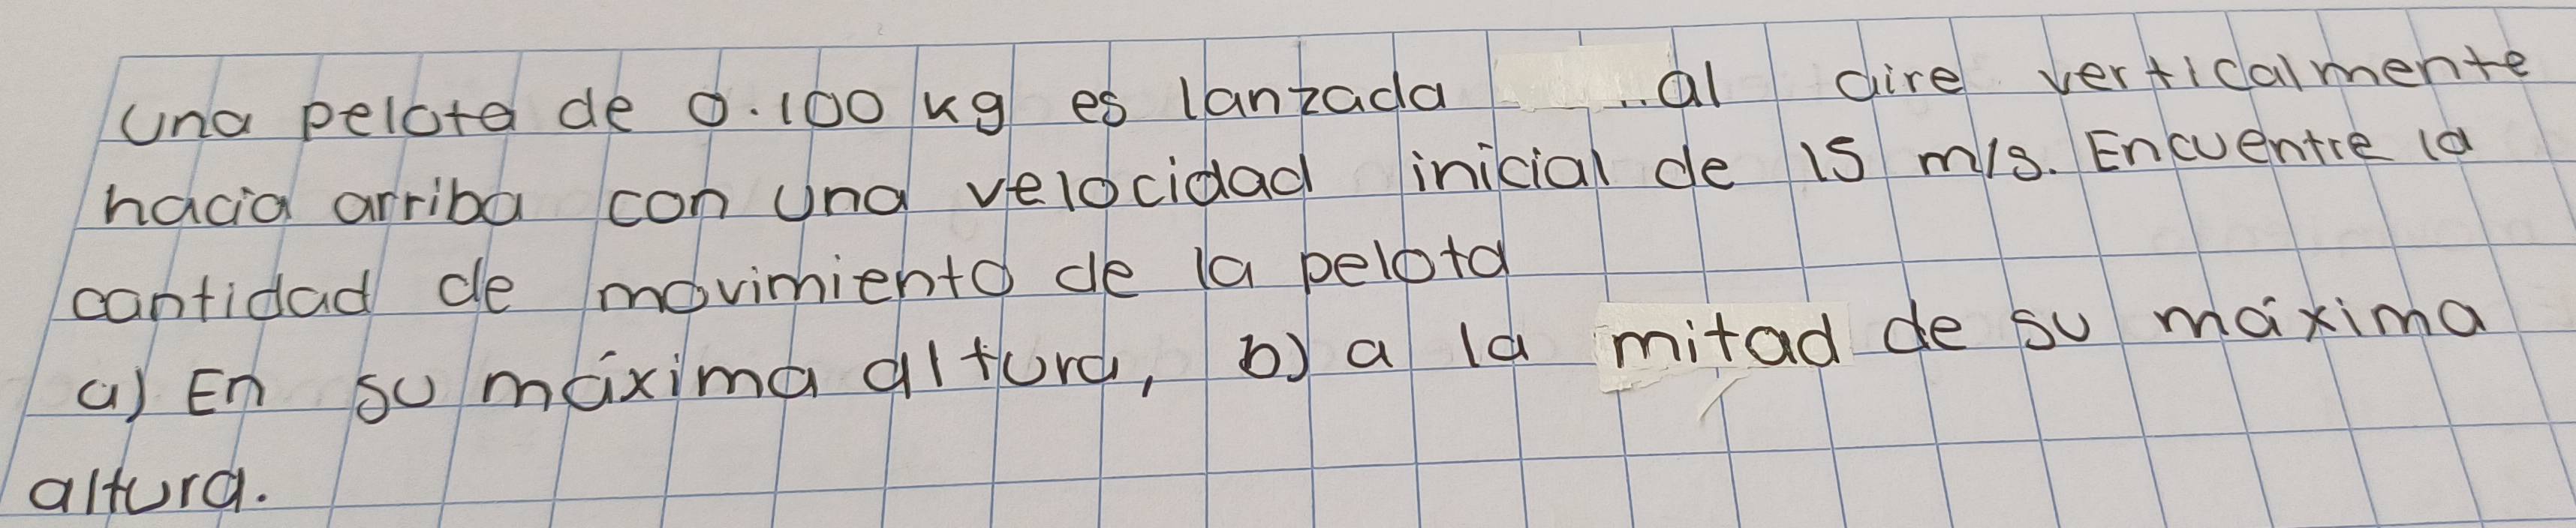 una pelota de 0.100 kg es lanzada al aire verticalmente
hacia arriba con una velocidad inicial de 15 m/s. Encuentre la
cantidad de movimiento de la pelota
a) En su máxima altura, b) a la mitad de su máxima
altura.